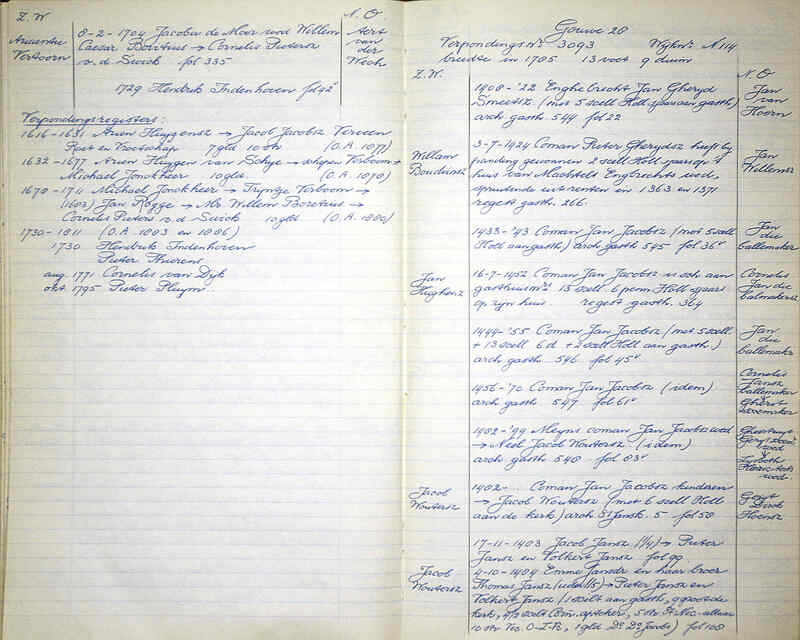 Z.W
N.O.
8-2-1704 Jacoba de Moor wed Willem
Caesar Boretius → Cornelis Pietersz
v.d. Swick fol 335
Toorn
Aert
van
der
1729 Hendrik Indenhoven fol 92
Verpondingsregisters:
1616-1631 Arien Huygensz → Jacob Jacobsz Verveen
7 gld 10 str (O.A. 1077)
1632-1677 Arien Huygen van → schepen Verboom →
Michael Jonckheer 10 gld (O.A. 1078)
1678-1711 Michael Jonckheer → Tryntge Verboom →
Jan Rogge → Mr Willem Boretius →
Cornelis Pieters v.d. Swick 10 gld (O.A. 1880)
1730-1811 (O.A. 1883 en 1886)
1730 Hendrik Indenhoven
Pieter
aug 1771 Cornelis van Dyk
okt 1795 Pieter Pluym.
Gouwe 28
Verpondings nr 3093 Wyknr N 114
breedte in 1785 13 voet 9 duim
Z.W.
N.O
1408-'22 Enghebrecht Jan Gheryd
Smeetsz (met 5 scell Holl. aan gasth)
arch gasth 544 fol 22
Jan
van
Hoorn
Willem
Boudinsz
3-7-1424 Coman Pieter Gherydsz heeft by
panding gewonnen 2 scell Holl op 't
huis van Machtelt Engbrechts wed,
spruitende uit renten in 1363 en 1371
regest gasth. 266.
Jan
Willemsz
1433-'43 Coman Jan Jacobsz (met 5 scell
Holl aan gasth) arch gasth 545 fol 36v
Jan
die
ballemaker
Jan
Hughensz
16-7-1452 Coman Jan Jacobsz is sch. aan
gasthuismrs 15 scell 6 penn Holl sjaars
op zyn huis. regest gasth. 364
Cornelis
Jan die
balmakersz
1444-'55 Coman Jan Jacobsz (met 5 scell
+ 13 scell 6 d + 2 scell Holl aan gasth.)
arch gasth 546 fol 45v
Jan
die
ballemaker
1456-'70 Coman Jan Jacobsz (idem)
arch gasth 547 fol 61v
Cornelis
Jansz
ballemaker
↓
Gherit
1482-'99 Meyns coman Jan Jacobsz wed
→ Neel Jacob Woutersz (idem)
arch gasth 548 fol 83v
wed
↓
Lysbeth
wed
Jacob
Woutersz
1482-... Coman Jan Jacobsz kinderen
→ Jacob Woutersz (met 6 scell Holl
aan de kerk) arch St Jansk. 5 fol 50
Dirck
17-11-1483 Jacob Jansz (1/4) → Pieter
Jansz en Volkert Jansz fol 99
Jacob
Woutersz
4-10-1484 Emme Jansdr en haar broer
Thomas Jansz → Pieter Jansz en
Volkert Jansz
fol 108